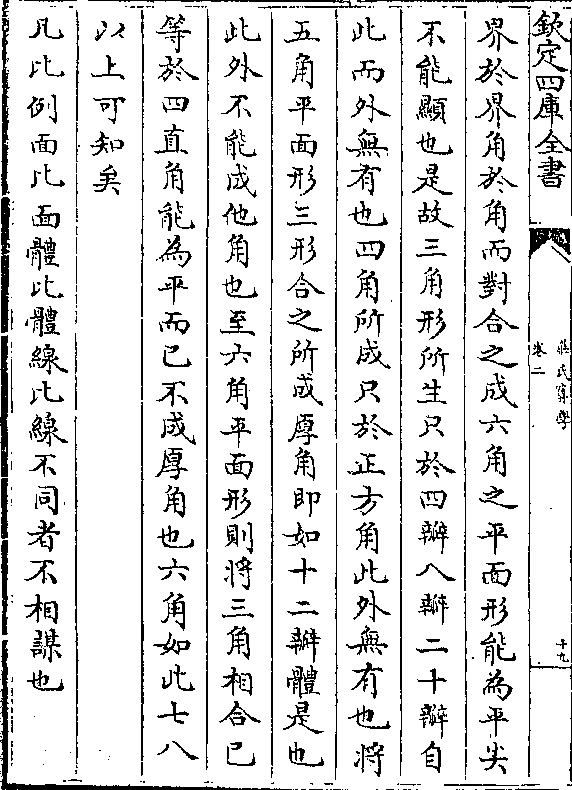 欽定四庫全書
卷二
十九
界於界角於角而對合之成六角之平面形能為平尖
不能顯也是故三角形所生只於四瓣八瓣二十瓣自
此而外無有也四角所成只於正方角此外無有也將
五角平面形三形合之所成厚角即如十二瓣體是也
此外不能成他角也至六角平面形則將三角相合已
等於四直角能為平而已不成厚角也六角如此七八
以上可知矣
凡比例面比面體比體線比線不同者不相謀也